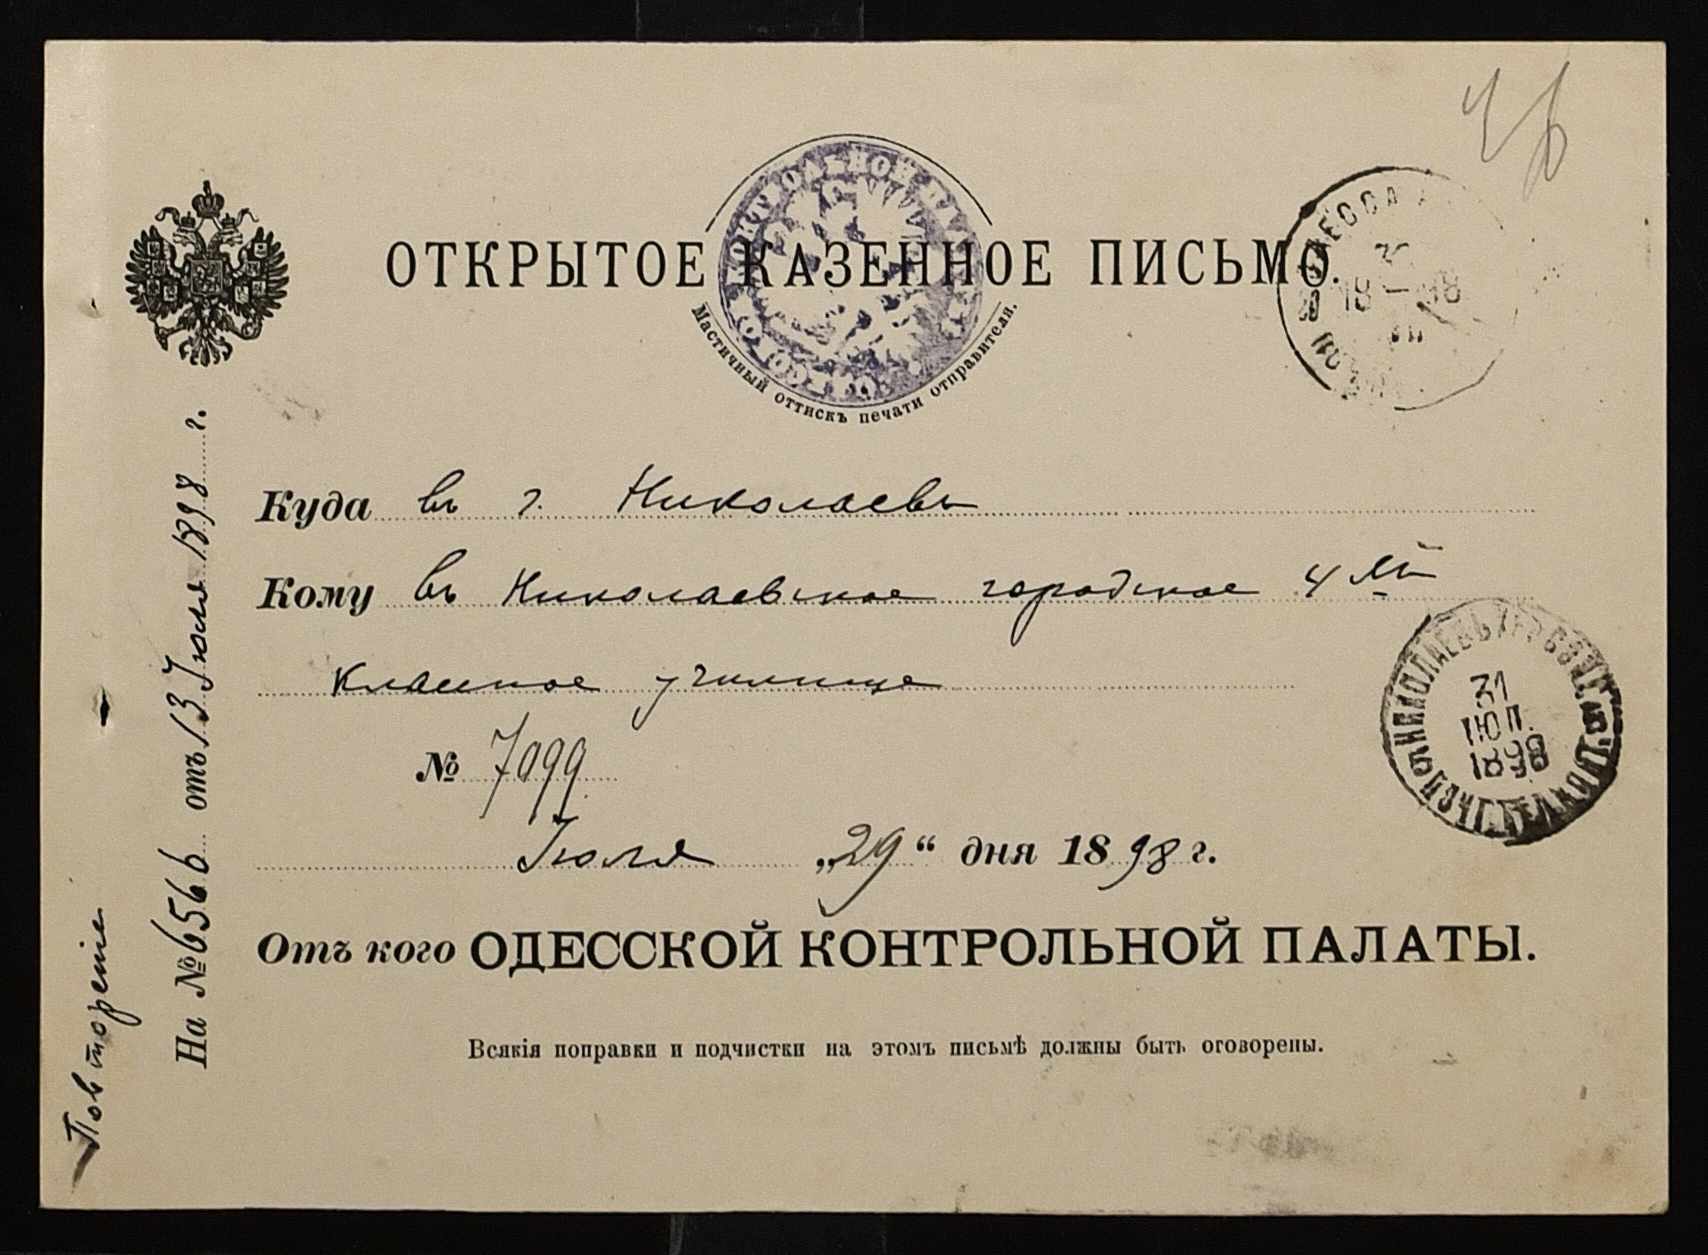 ОТКРЫТОЕ КАЗЕННОЕ ПИСЬМО.
Мастичный оттискъ печати отправителя.
ОДЕССА
Куда въ г. Николаевъ
Кому въ Николаевское городское 4 хъ
классное училище
№ 7099
Іюля „29“ дня 1898 г.
Отъ кого ОДЕССКОЙ КОНТРОЛЬНОЙ ПАЛАТЫ.
Всякія поправки и подчистки на этомъ письмѣ должны быть оговорены.
На № 6566 отъ 13 Іюля 1898 г.
Повтореніе
НИКОЛАЕВЪ ХЕРСОН.
31
ІЮЛ.
1898